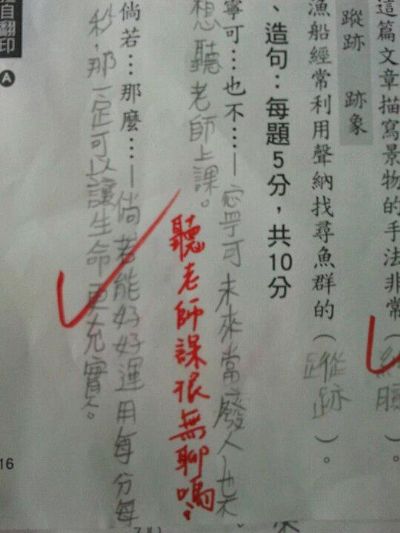 這篇文章描寫景物的手法非常（細膩
蹤跡　跡象
漁船經常利用聲納找尋魚群的（蹤跡）。
、造句：每題5分，共10分
寧可…也不…—寧可未來當廢人也不
想聽老師上課。
聽老師課很無聊嗎？
倘若…那麼…—倘若能好好運用每分每
秒，那一定可以讓生命更充實。
翻印
A
16